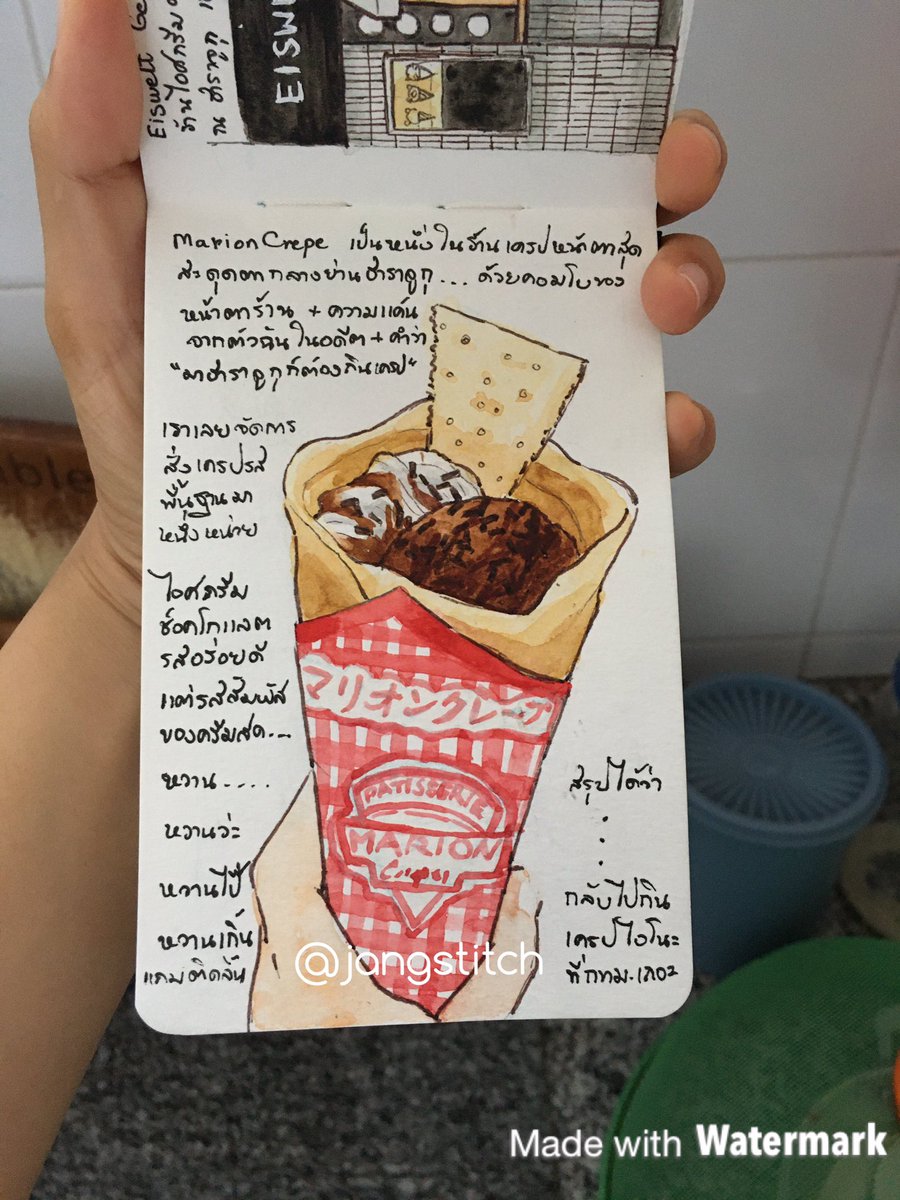 Eiswelt Ge
ร้านไอศครีม
ฮาราจูกุ
EISW
Marion Crepe เป็นหนึ่งในร้านเครปหน้าตาสุด
สะดุดตากลางย่านฮาราจูกุ... ด้วยคอมโบของ
หน้าตาร้าน + ความแค้น
จากตัวฉันในอดีต + คำว่า
"มาฮาราจูกุก็ต้องกินเครป"
เราเลยจัดการ
สั่งเครปรส
พื้นฐานมา
หนึ่งหน่วย
ไอศครีม
ช็อคโกแลต
รสอร่อยดี
แต่รสสัมผัส
ของครีมสด...
หวาน....
หวานว่ะ
หวานไป๊
หวานเกิ๊น
แถมติดลิ้น
マリオンクレープ
PATISSERIE
MARION
Crepes
สรุปได้ว่า
.
.
.
กลับไปกิน
เครปไอโนะ
ที่กทม.เถอะ
@jongstitch
Made with Watermark